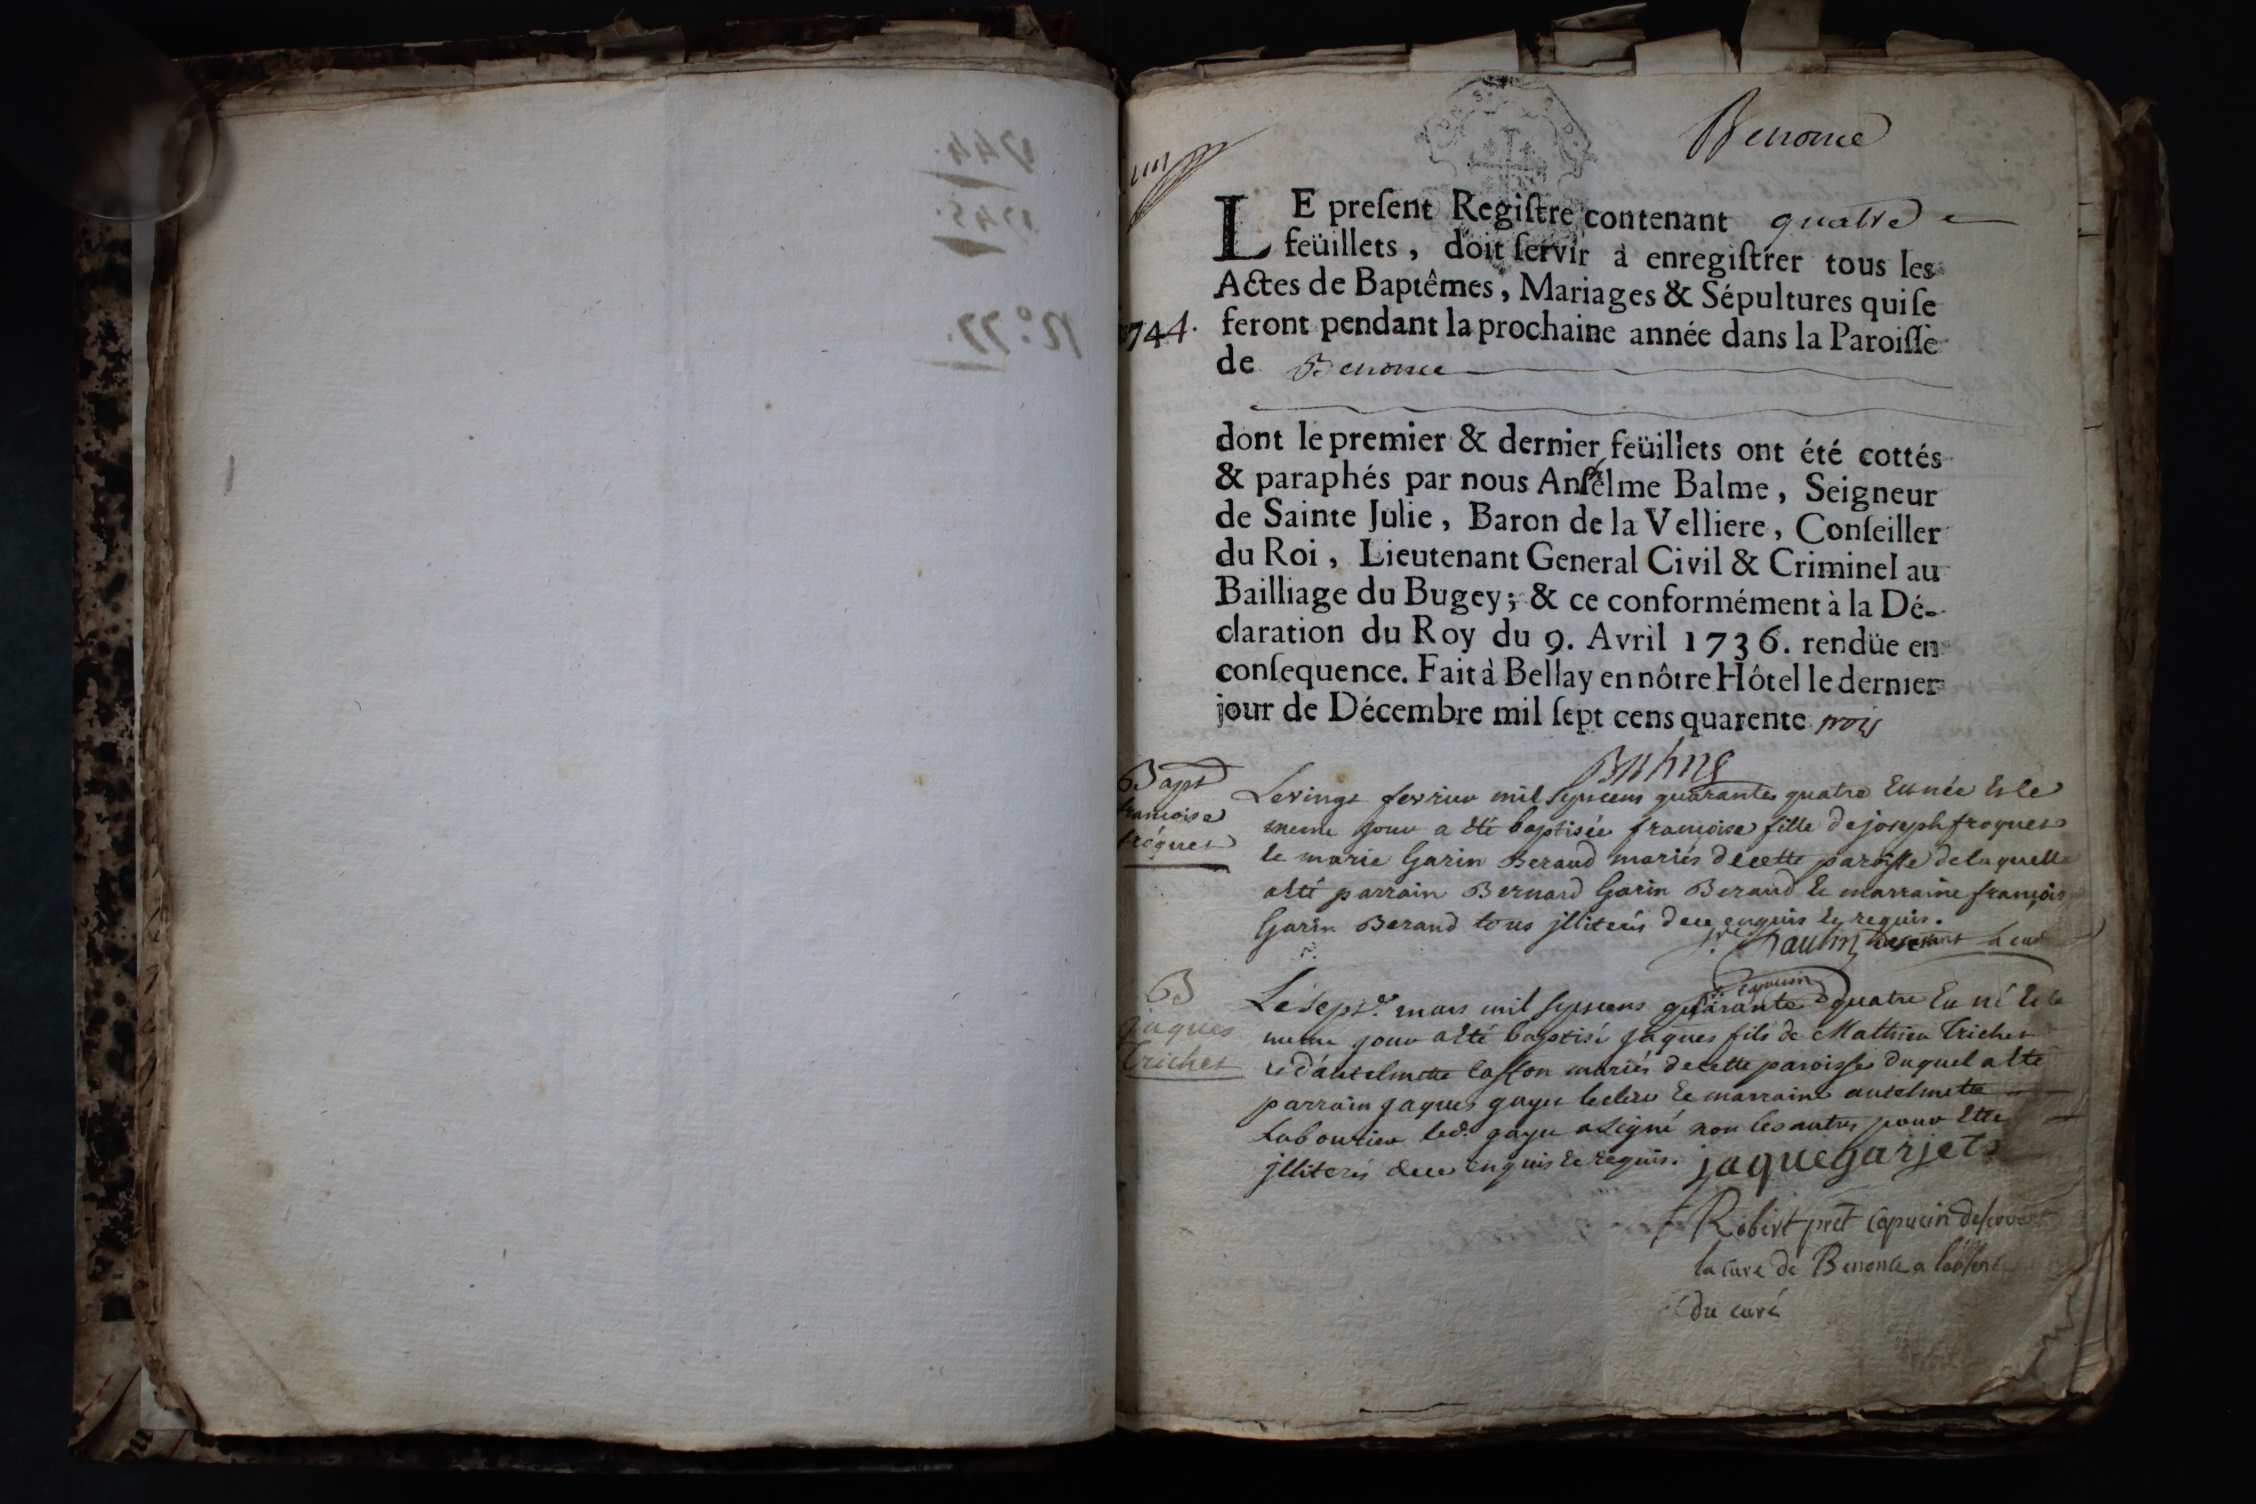 1744.
1745.
N.° 77.
Benonce
LE preſent Regiſtre contenant quatre
feüillets, doit ſervir à enregiſtrer tous les
Actes de Baptêmes, Mariages & Sépultures qui ſe
1744. feront pendant la prochaine année dans la Paroiſſe
de Benonce
dont le premier & dernier feüillets ont été cottés
& paraphés par nous Anſelme Balme, Seigneur
de Sainte Julie, Baron de la Velliere, Conſeiller
du Roi, Lieutenant General Civil & Criminel au
Bailliage du Bugey; & ce conformément à la Dé-
claration du Roy du 9. Avril 1736. rendüe en
conſequence. Fait à Bellay en nôtre Hôtel le dernier
jour de Décembre mil ſept cens quarente trois
Balme
Bapt
françoise
froquet
Le vingt fevrier mil sept cens quarante quatre est née et le
meme jour a été baptisée françoise fille de joseph froquet
et marie Garin Beraud mariés de cette paroisse de laquelle
a été parrain Bernard Garin Beraud et marraine françoise
Garin Beraud tous jlliterés de ce enquis et requis.
capucin
B
jaques
Trichet
Le sept.e mars mil sept cens quarante quatre est né et le
meme jour a été baptisé jaques fils de Mathieu Trichet
et d'antelmette mariés de cette paroisse duquel a été
parrain jaques et marraine antelmette
led. a signé non les autres pour être
jlliterés de ce enquis et requis. jaque garjet
f Robert pret capucin deservant
la cure de Benonce a l'absence
du curé